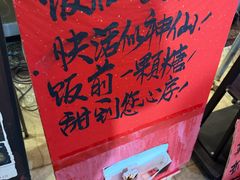 快活似神仙!
饭前一颗糖
甜到您心房!